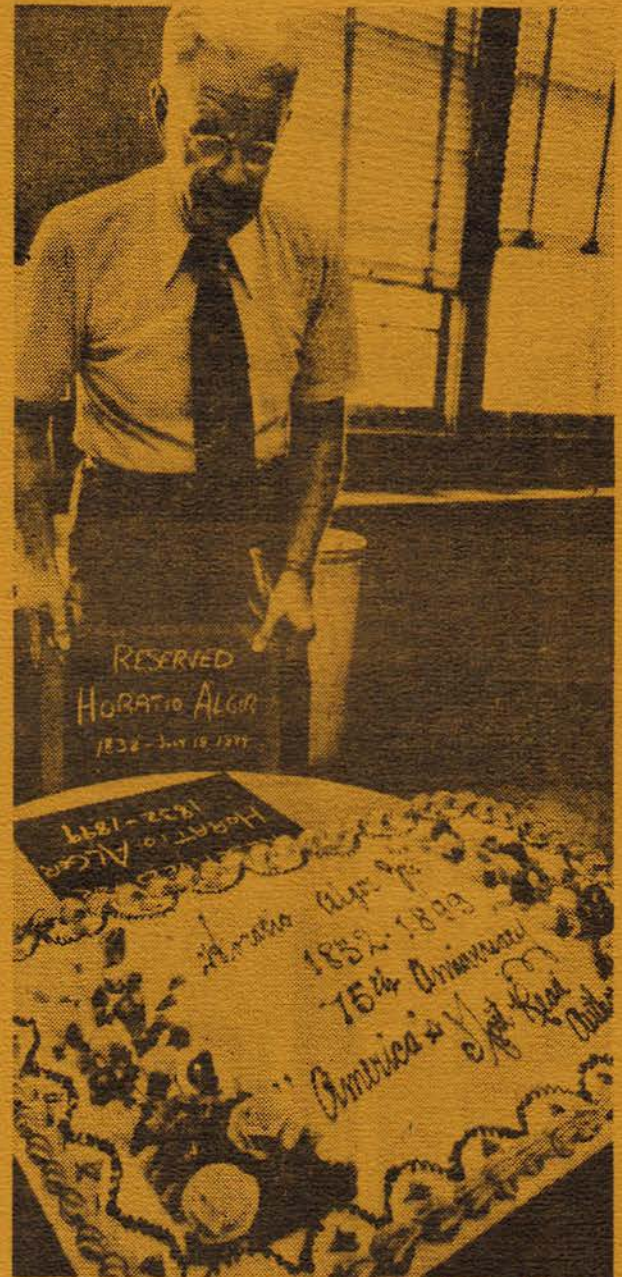 RESERVED
HORATIO ALGER
1832 - JULY 18 1899
HORATIO ALGER
1832-1899
Horatio Alger Jr.
1832-1899
75th Anniversary
"America's Most Read